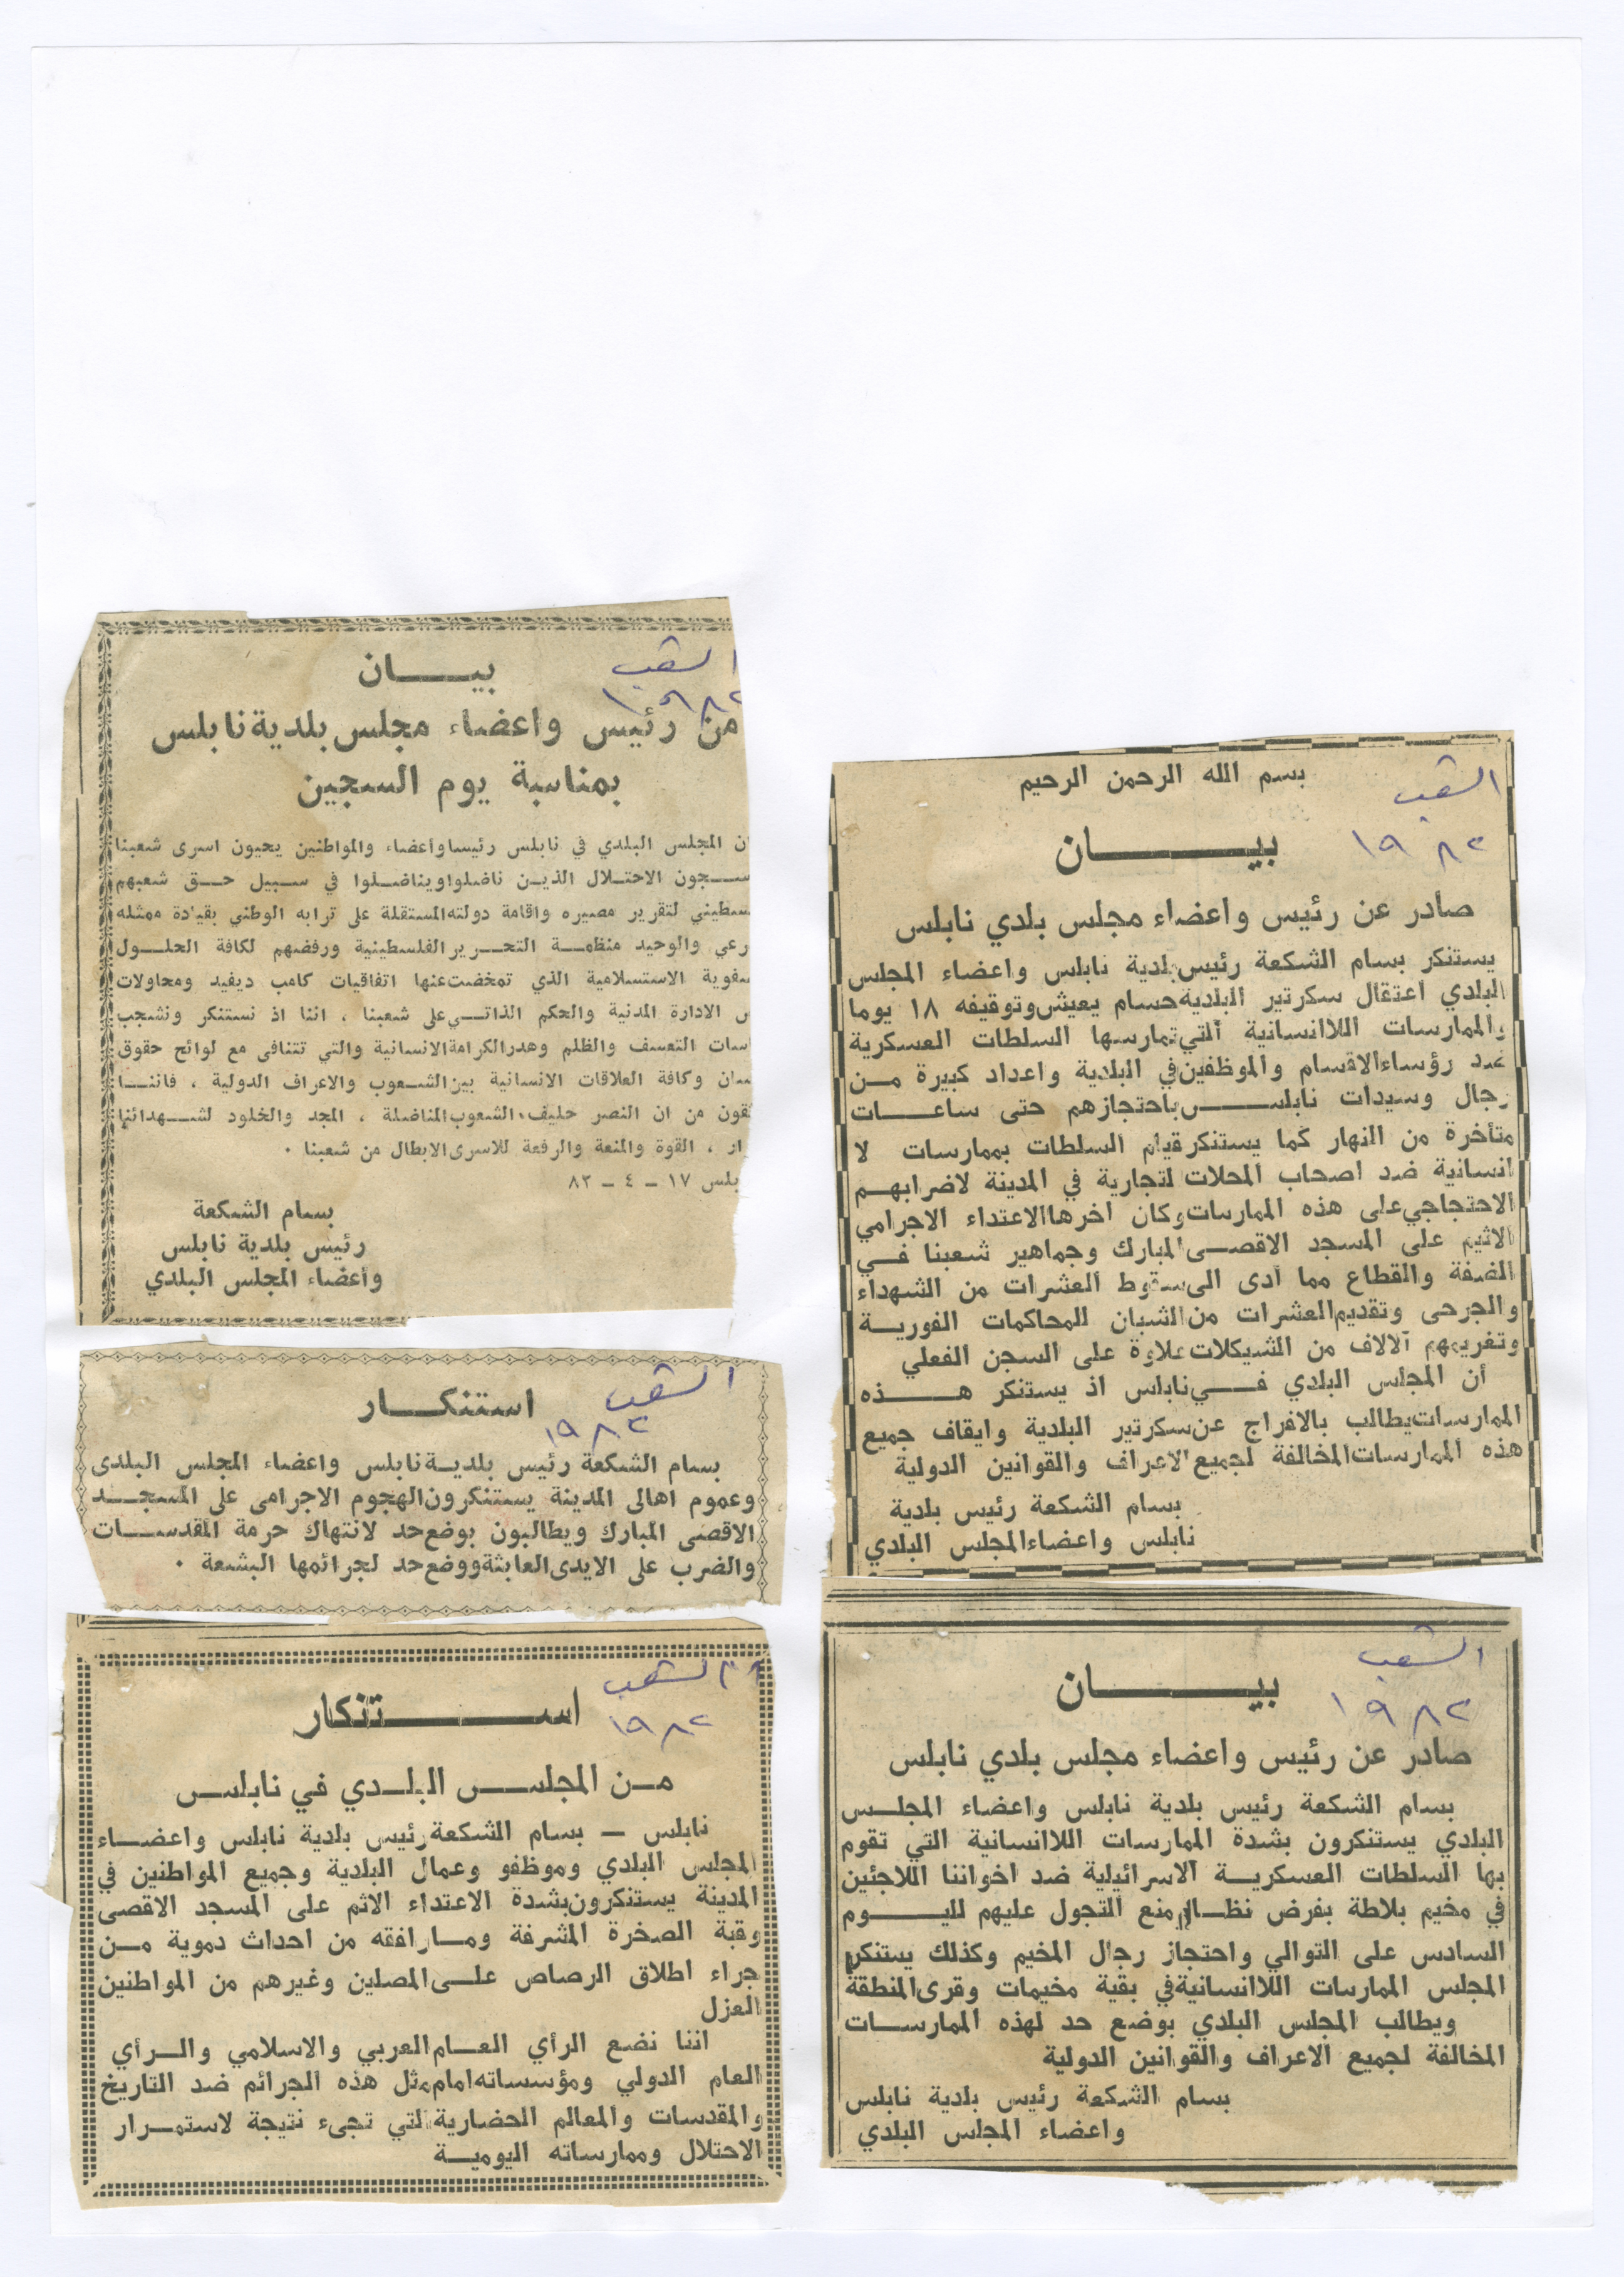 الشعب
١٩٨٢
بسم الله الرحمن الرحيم
بيـــــان
صادر عن رئيس واعضاء مجلس بلدي نابلس
يستنكر بسام الشكعة رئيس بلدية نابلس واعضاء المجلس
البلدي اعتقال سكرتير البلدية حسام يعيش وتوقيفه ١٨ يوما
والممارسات اللاانسانية التي تمارسها السلطات العسكرية
ضد رؤساء الاقسام والموظفين في البلدية واعداد كبيرة مــن
رجال وسيدات نابلــس باحتجازهم حتى ساعــات
متأخرة من النهار كما يستنكر قيام السلطات بممارسات لا
انسانية ضد اصحاب المحلات لتجارية في المدينة لاضرابهــم
الاحتجاجي على هذه الممارسات وكان اخرها الاعتداء الاجرامي
الاثيم على المسجد الاقصــى المبارك وجماهير شعبنا فــي
الضفة والقطاع مما أدى الى سقوط العشرات من الشهداء
والجرحى وتقديم العشرات من الشبان للمحاكمات الفوريــة
وتغريمهم آلالاف من الشيكلات علاوة على السجن الفعلي
أن المجلس البلدي فــي نابلس اذ يستنكر هــذه
الممارسات يطالب بالافراج عن سكرتير البلدية وايقاف جميع
هذه الممارسات المخالفة لجميع الاعراف والقوانين الدولية
بسام الشكعة رئيس بلدية
نابلس واعضاء المجلس البلدي
الشعب
١٩٨٢
بيـــــان
صادر عن رئيس واعضاء مجلس بلدي نابلس
بسام الشكعة رئيس بلدية نابلس واعضاء المجلــس
البلدي يستنكرون بشدة الممارسات اللاانسانية التي تقوم
بها السلطات العسكريــة الاسرائيلية ضد اخواننا اللاجئين
في مخيم بلاطة بفرض نظــام منع التجول عليهم لليــوم
السادس على التوالي واحتجاز رجال المخيم وكذلك يستنكر
المجلس الممارسات اللاانسانية في بقية مخيمات وقرى المنطقة
ويطالب المجلس البلدي بوضع حد لهذه الممارســات
المخالفة لجميع الاعراف والقوانين الدولية
بسام الشكعة رئيس بلدية نابلس
واعضاء المجلس البلدي
الشعب
١٩٨٢
بيـــان
من رئيس واعضاء مجلس بلدية نابلس
بمناسبة يوم السجين
ان المجلس البلدي في نابلس رئيسا وأعضاء والمواطنين يحيون اسرى شعبنا
ســجون الاحتــلال الذيــن ناضلوا ويناضــلوا في ســبيل حــق شعبهم
سطيني لتقرير مصيره واقامة دولته المستقلة على ترابه الوطني بقيادة ممثله
رعي والوحيد منظمــة التحــرير الفلسطينية ورفضهم لكافة الحلــول
سفوية الاستسلامية الذي تمخضت عنها اتفاقيات كامب ديفيد ومحاولات
ض الادارة المدنية والحكم الذاتــي على شعبنا ، اننا اذ نستنكر ونشجب
اسات التعسف والظلم وهدر الكرامة الانسانية والتي تتنافى مع لوائح حقوق
سان وكافة العلاقات الانسانية بين الشــعوب والاعراف الدولية ، فاننــا
ثقون من ان النصر حليف الشعوب المناضلة ، المجد والخلود لشــهدائنا
رار ، القوة والمنعة والرفعة للاسرى الابطال من شعبنا .
بلس ١٧ - ٤ - ٨٢
بسام الشكعة
رئيس بلدية نابلس
وأعضاء المجلس البلدي
الشعب
١٩٨٢
استنكــار
بسام الشكعة رئيس بلديــة نابلس واعضاء المجلس البلدى
وعموم اهالى المدينة يستنكرون الهجوم الاجرامى على المسجــد
الاقصى المبارك ويطالبون بوضع حد لانتهاك حرمة المقدســات
والضرب على الايدى العابثة ووضع حد لجرائمها البشعة .
الشعب
١٩٨٢
اســـتنكار
مــن المجلــس البلــدي في نابلــس
نابلس — بسام الشكعة رئيس بلدية نابلس واعضــاء
المجلس البلدي وموظفو وعمال البلدية وجميع المواطنين في
المدينة يستنكرون بشدة الاعتداء الاثم على المسجد الاقصى
وقبة الصخرة المشرفة ومــا رافقه من احداث دموية مــن
جراء اطلاق الرصاص علــى المصلين وغيرهم من المواطنين
العزل
اننا نضع الرأي العــام العربي والاسلامي والــرأي
العام الدولي ومؤسساته امام مثل هذه الجرائم ضد التاريخ
والمقدسات والمعالم الحضارية التي تجىء نتيجة لاستمــرار
الاحتلال وممارساته اليوميــة